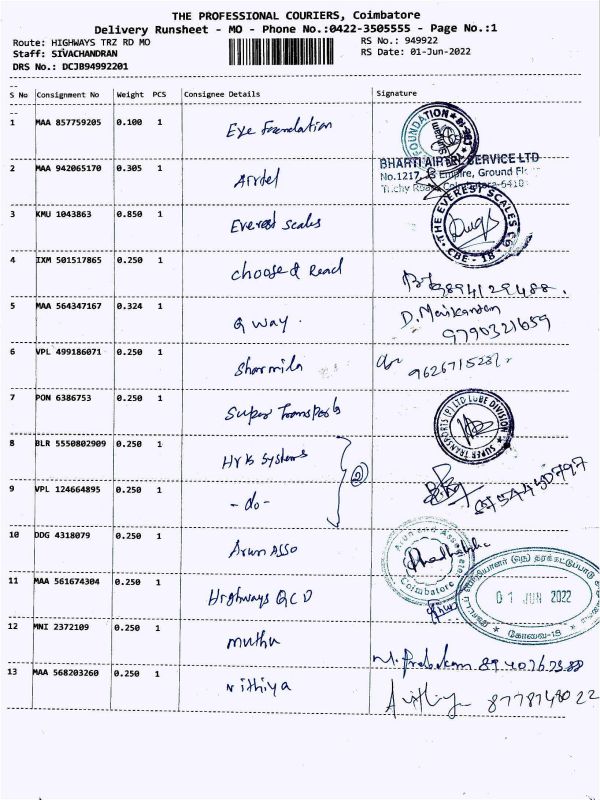 THE PROFESSIONAL COURIERS, Coimbatore
Delivery Runsheet - MO - Phone No.:0422-3505555 - Page No.:1
Route: HIGHWAYS TRZ RD MO
RS No.: 949922
Staff: SIVACHANDRAN
RS Date: 01-Jun-2022
DRS No.: DCJB94992201
S No Consignment No Weight PCS Consignee Details Signature
1 MAA 857759205 0.100 1 Eye Foundation
FOUNDATION
2 MAA 942065170 0.305 1 Airtel
BHARTI AIRTEL SERVICE LTD
No.1217, Empire, Ground
Trichy Road, Coimbatore-6410
3 KMU 1043863 0.850 1 Everest Scales
THE EVEREST SCALES CO
CBE - 18
4 IXM 501517865 0.250 1 choose & Read
9894129488.
5 MAA 564347167 0.324 1 Q way.
D. Manikandan
9790321659
6 VPL 499186071 0.250 1 Sharmila
7 PON 6386753 0.250 1 Super Transports
SUPER TRANSPORTS (P) LTD LUBE DIVISION
8 BLR 5550802909 0.250 1 HYK Systems
2
9 VPL 124664895 0.250 1 -do-
10 DDG 4318079 0.250 1 Arun Asso
Arun and Associates
Coimbatore
11 MAA 561674304 0.250 1 Highways QCD
01 JUN 2022
கோவை-18
12 MNI 2372109 0.250 1 muthu
13 MAA 568203260 0.250 1 Nithiya
8778748022